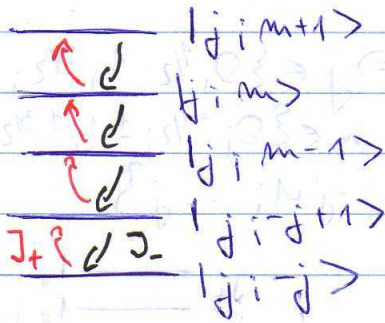 |j; m+1>
|j; m>
|j; m-1>
|j; -j+1>
J+ J-
|j; -j>